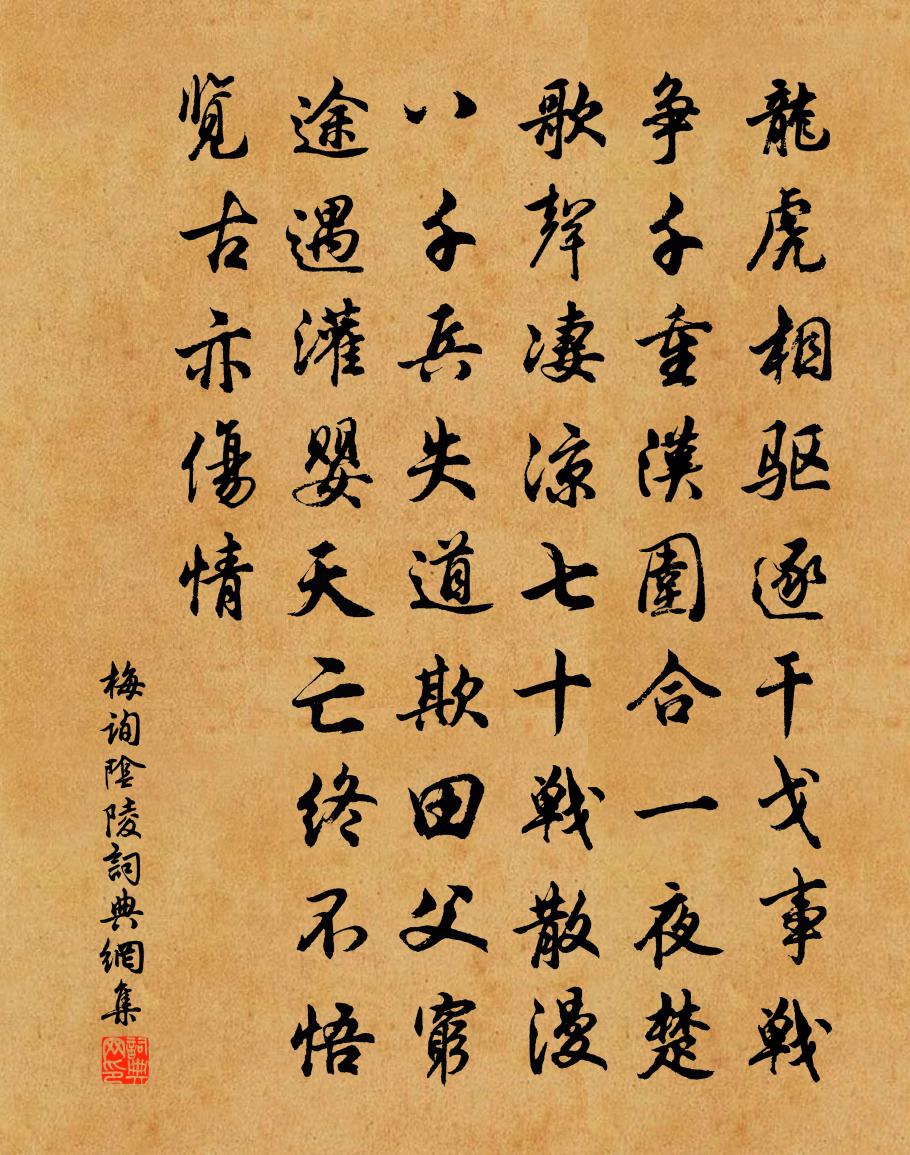 龍虎相驱逐干戈事戦
争千重漢圍合一夜楚
歌聲凄涼七十戦散漫
八千兵失道欺田父窮
途遇灌嬰天亡终不悟
览古亦傷情
梅询陰陵詞典網集
詞典网印